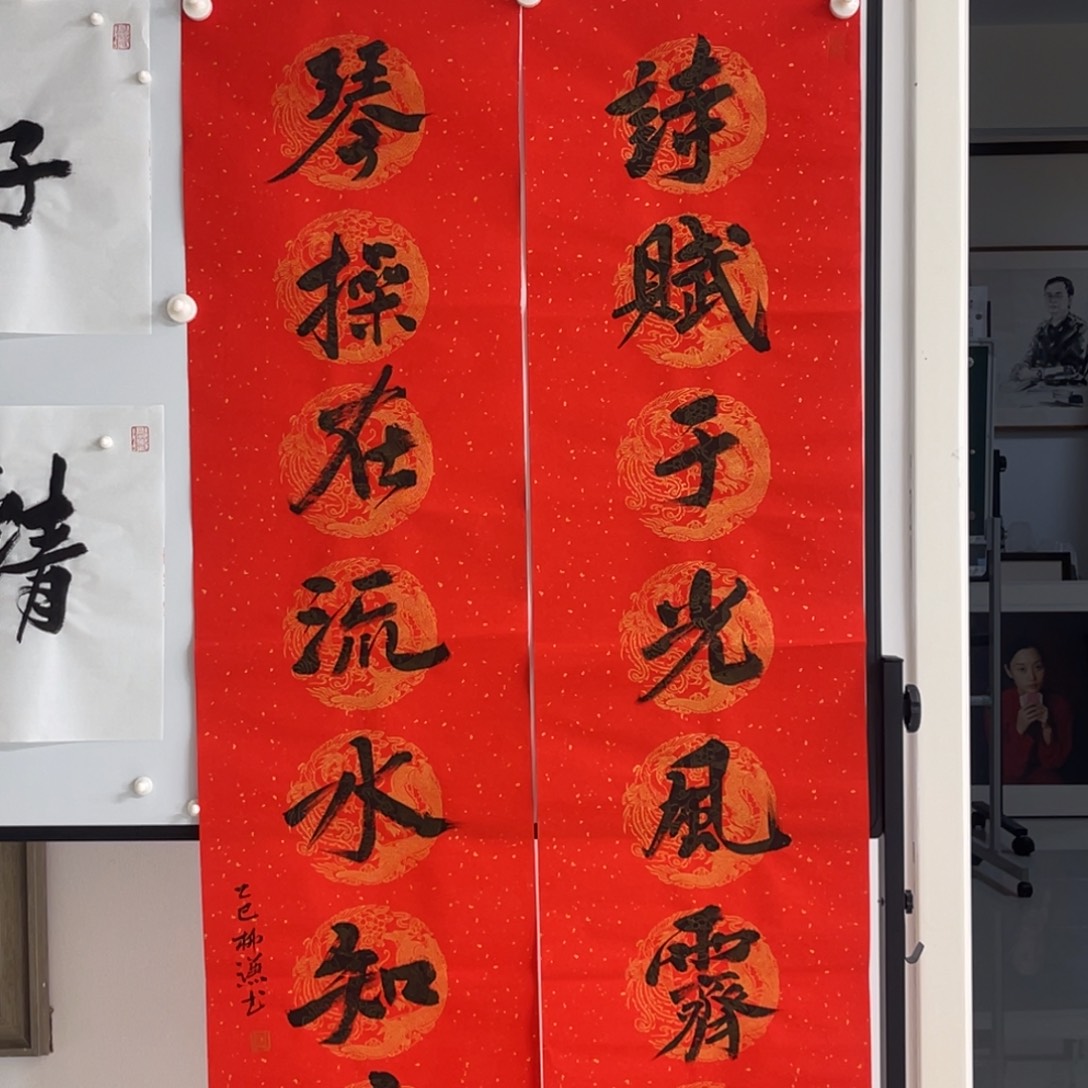 詩賦于光風霽
琴操在流水知
乙巳柳谦书
子
清